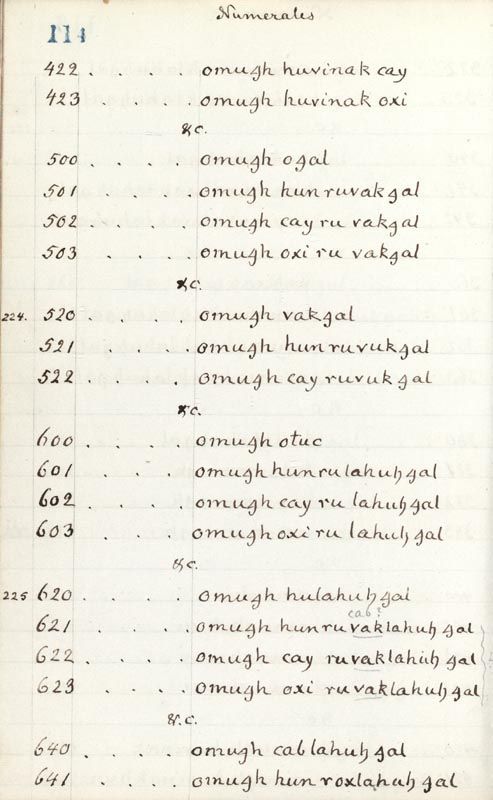 Numerales
114
422 . . . . omugh huvinak cay
423 . . . . omugh huvinak oxi
&c.
500 . . . . omugh ogal
501 . . . . omugh hun ruvakgal
502 . . . . omugh cay ru vakgal
503 . . . . omugh oxi ru vakgal
&c.
224. 520 . . . . omugh vakgal
521 . . . . omugh hun ruvukgal
522 . . . . omugh cay ruvuk gal
&c.
600 . . . . omugh otuc
601 . . . . omugh hun ru lahuh gal
602 . . . . omugh cay ru lahuh gal
603 . . . . omugh oxi ru lahuh gal
&c.
225 620 . . . . omugh hulahuh gal
cab?
621 . . . . omugh hun ru vaklahuh gal
622 . . . . omugh cay ruvaklahuh gal
623 . . . . omugh oxi ruvaklahuh gal
&c.
640 . . . . omugh cablahuh gal
641 . . . . omugh hun roxlahuh gal